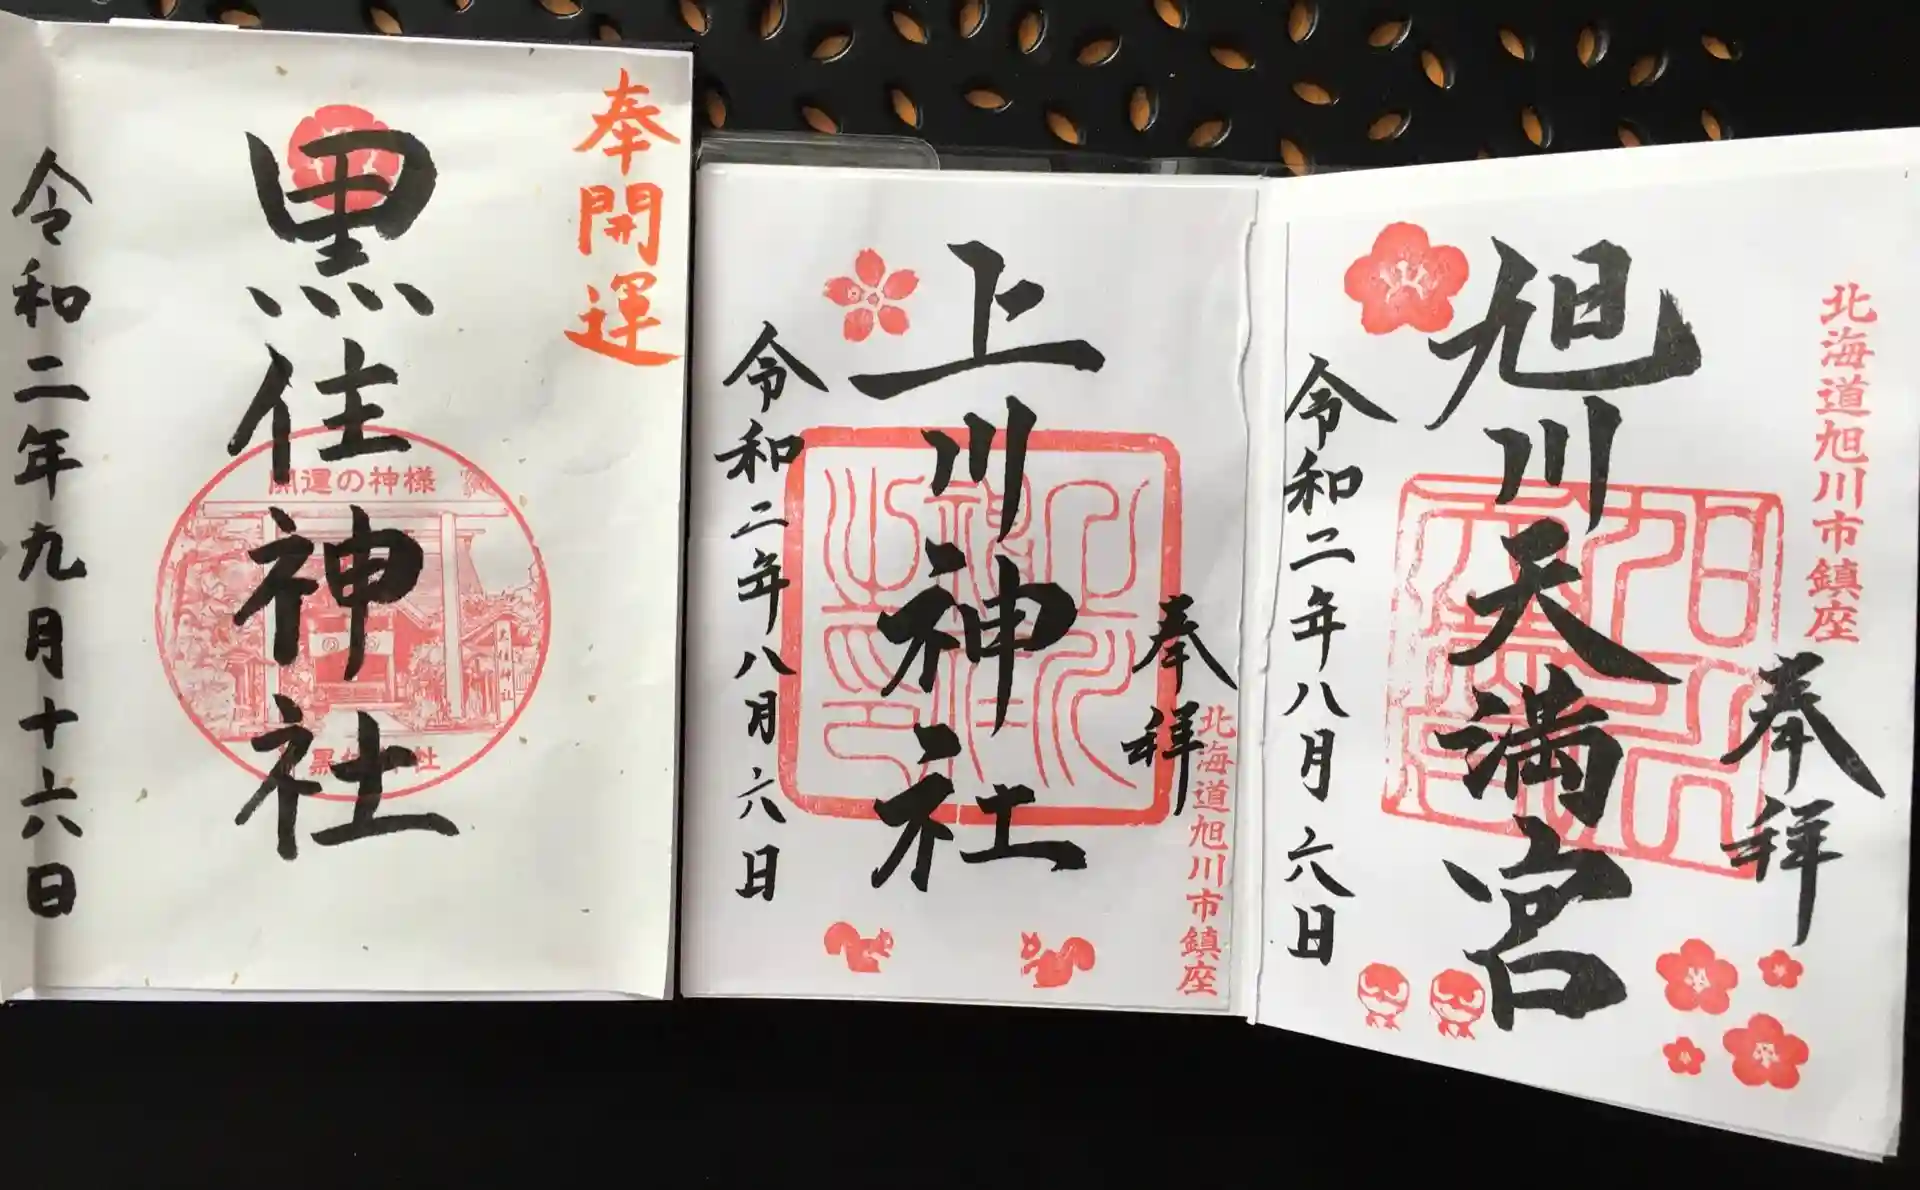 奉開運
黒住神社
開運の神様
令和二年九月十六日
北海道旭川市鎮座
奉拝
旭川天満宮
令和二年八月六日
北海道旭川市鎮座
奉拝
上川神社
令和二年八月六日